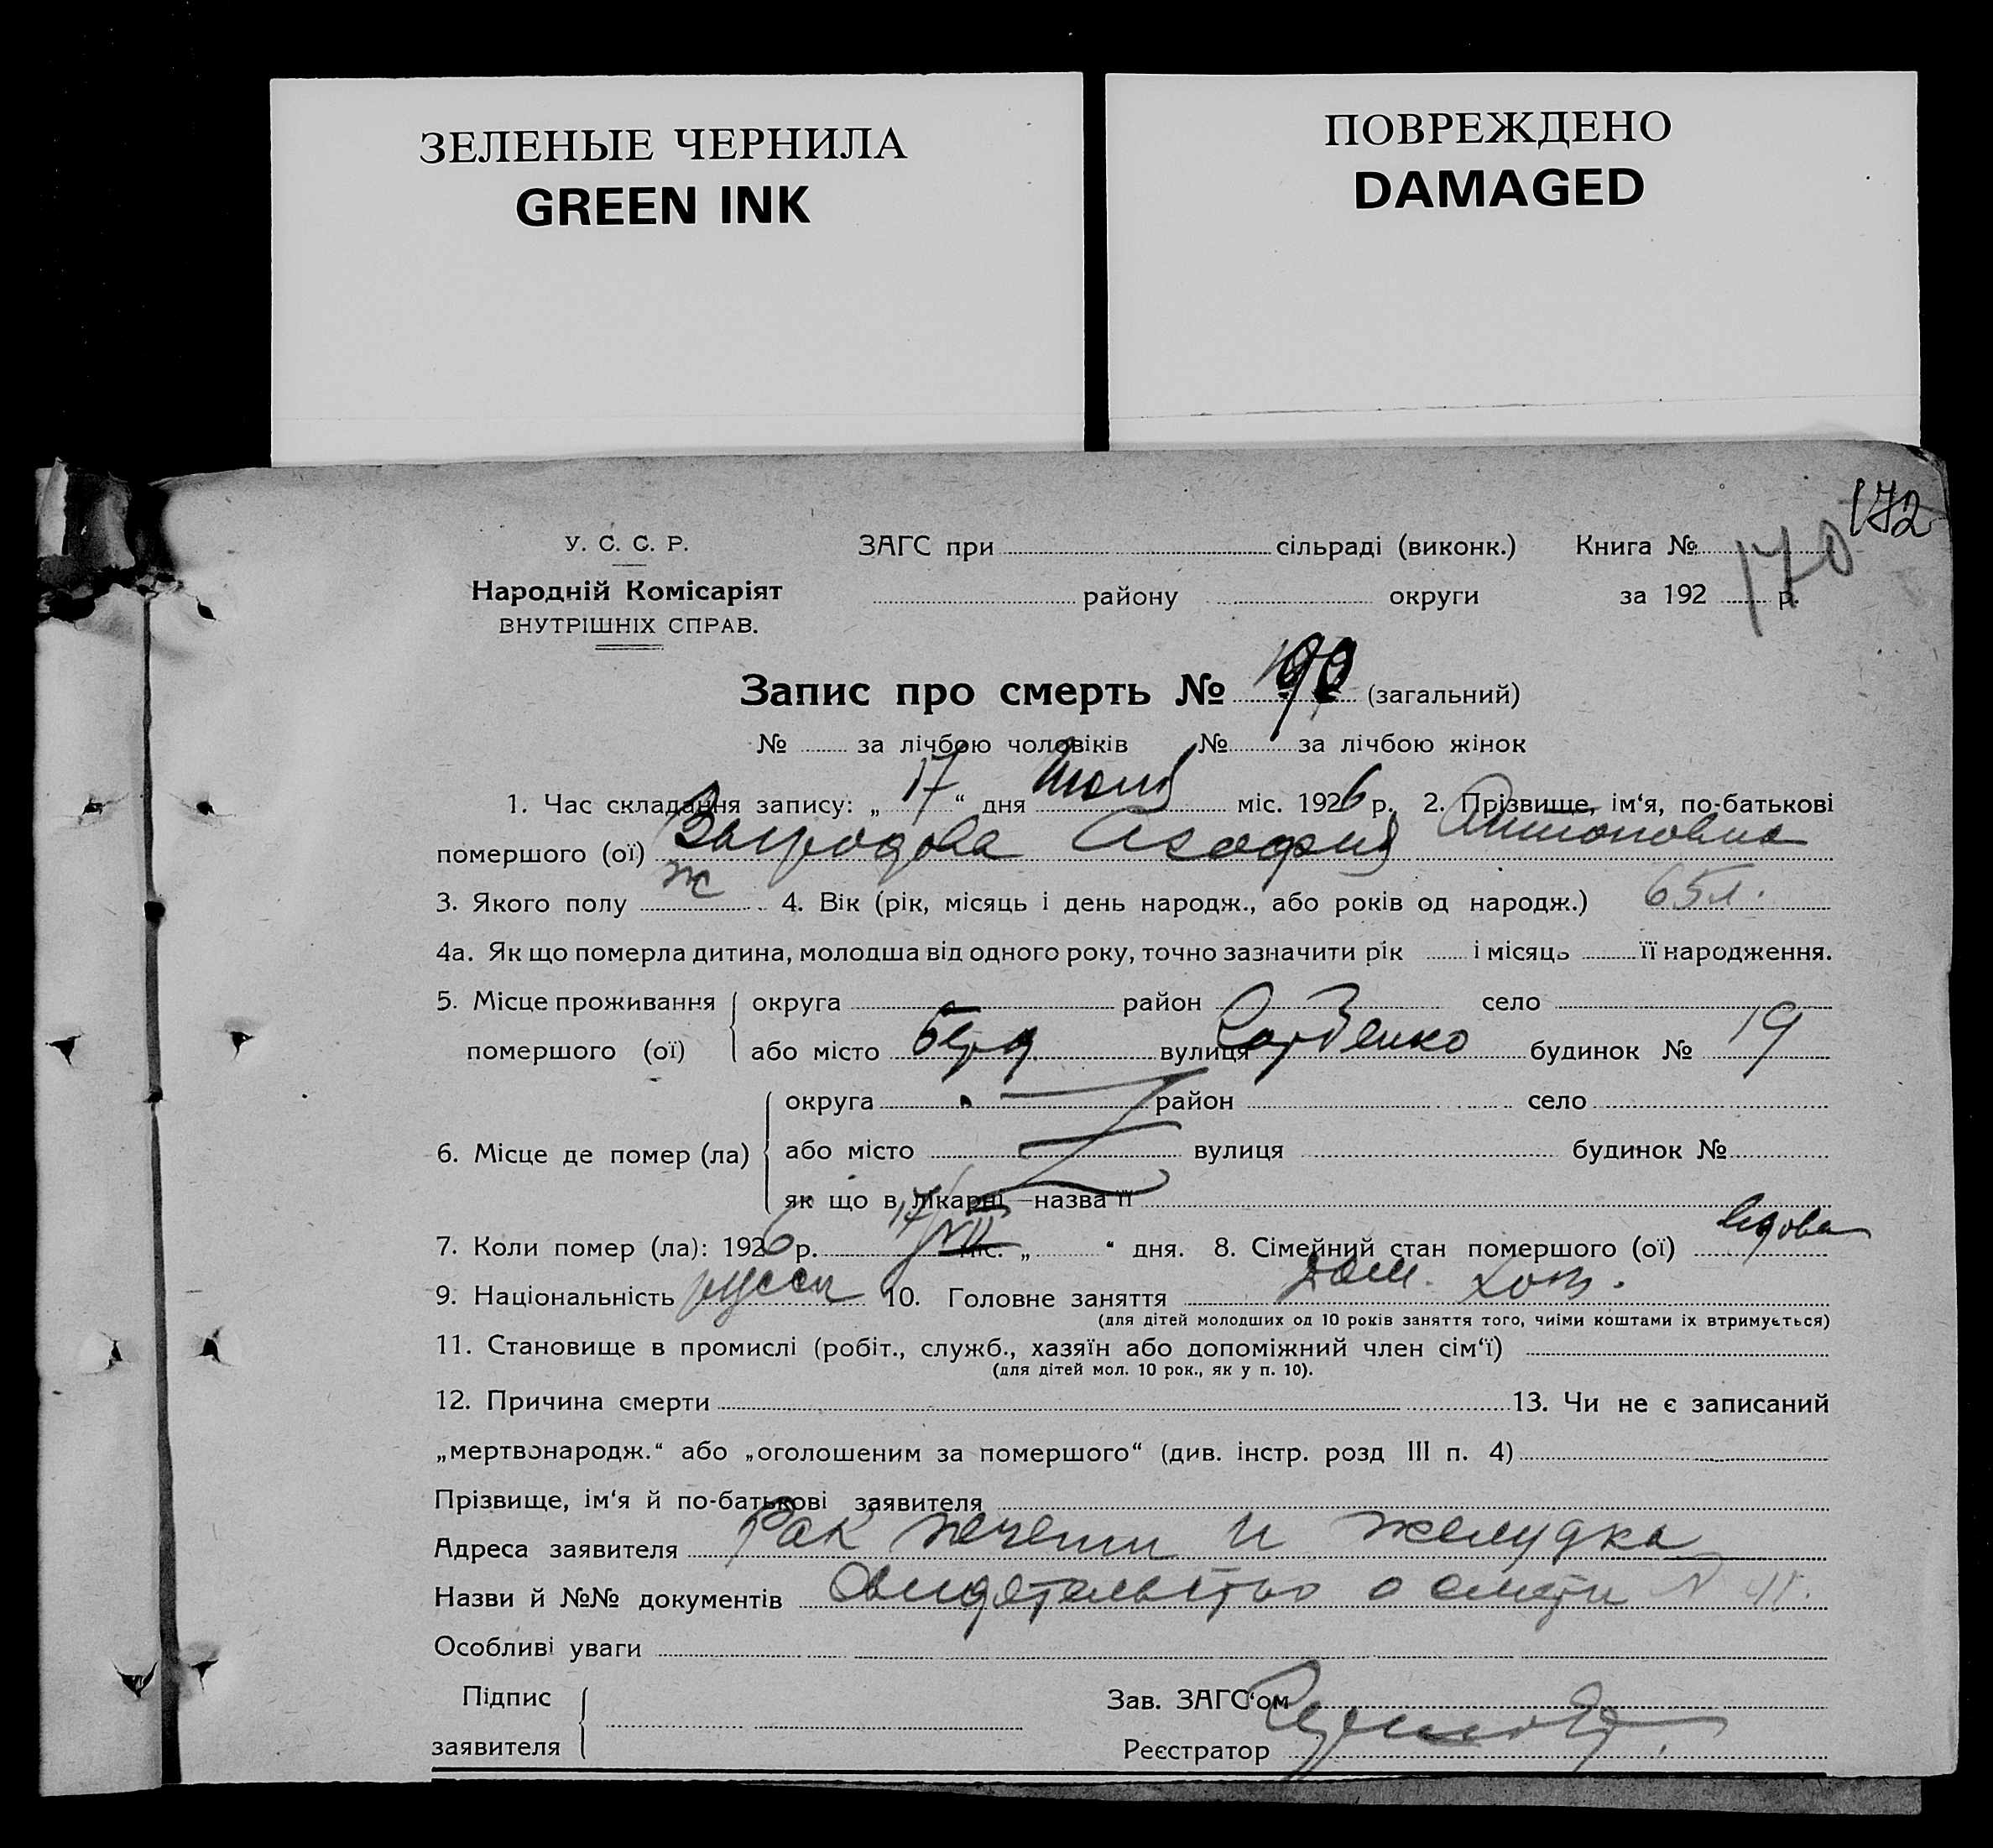 ЗЕЛЕНЫЕ ЧЕРНИЛА
GREEN INK
ПОВРЕЖДЕНО
DAMAGED
172
170
У. С. С. Р.
Народній Комісаріят
ВНУТРІШНІХ СПРАВ.
ЗАГС при сільраді (виконк.) Книга №
району округи за 192 р.
Запис про смерть № (загальний)
№ за лічбою чоловіків № за лічбою жінок
1. Час складання запису: „ 17 “ дня Июля міс. 1926 р. 2. Прізвище, ім‘я, по-батькові
помершого (ої) Антоновна
3. Якого полу ж 4. Вік (рік, місяць і день народж., або років од народж.) 65 л.
4а. Як що померла дитина, молодша від одного року, точно зазначити рік і місяць її народження.
5. Місце проживання округа район село
помершого (ої) або місто вулиця будинок № 19
округа район село
6. Місце де помер (ла) або місто вулиця будинок №
як що в лікарні—назва її
7. Коли помер (ла): 1926 р. 17/VII міс. „ “ дня. 8. Сімейний стан помершого (ої) вдова
9. Національність русск 10. Головне заняття Дом. хоз.
(для дітей молодших од 10 років заняття того, чиїми коштами їх втримується)
11. Становище в промислі (робіт., служб., хазяїн або допоміжний член сім‘ї)
(для дітей мол. 10 рок., як у п. 10).
12. Причина смерти 13. Чи не є записаний
„мертвонародж.“ або „оголошеним за помершого“ (див. інстр. розд III п. 4)
Прізвище, ім‘я й по-батькові заявителя
Адреса заявителя Рак печени и желудка
Назви й №№ документів Свидетельство о смерти N
Особливі уваги
Підпис
заявителя
Зав. ЗАГС‘ом
Реєстратор